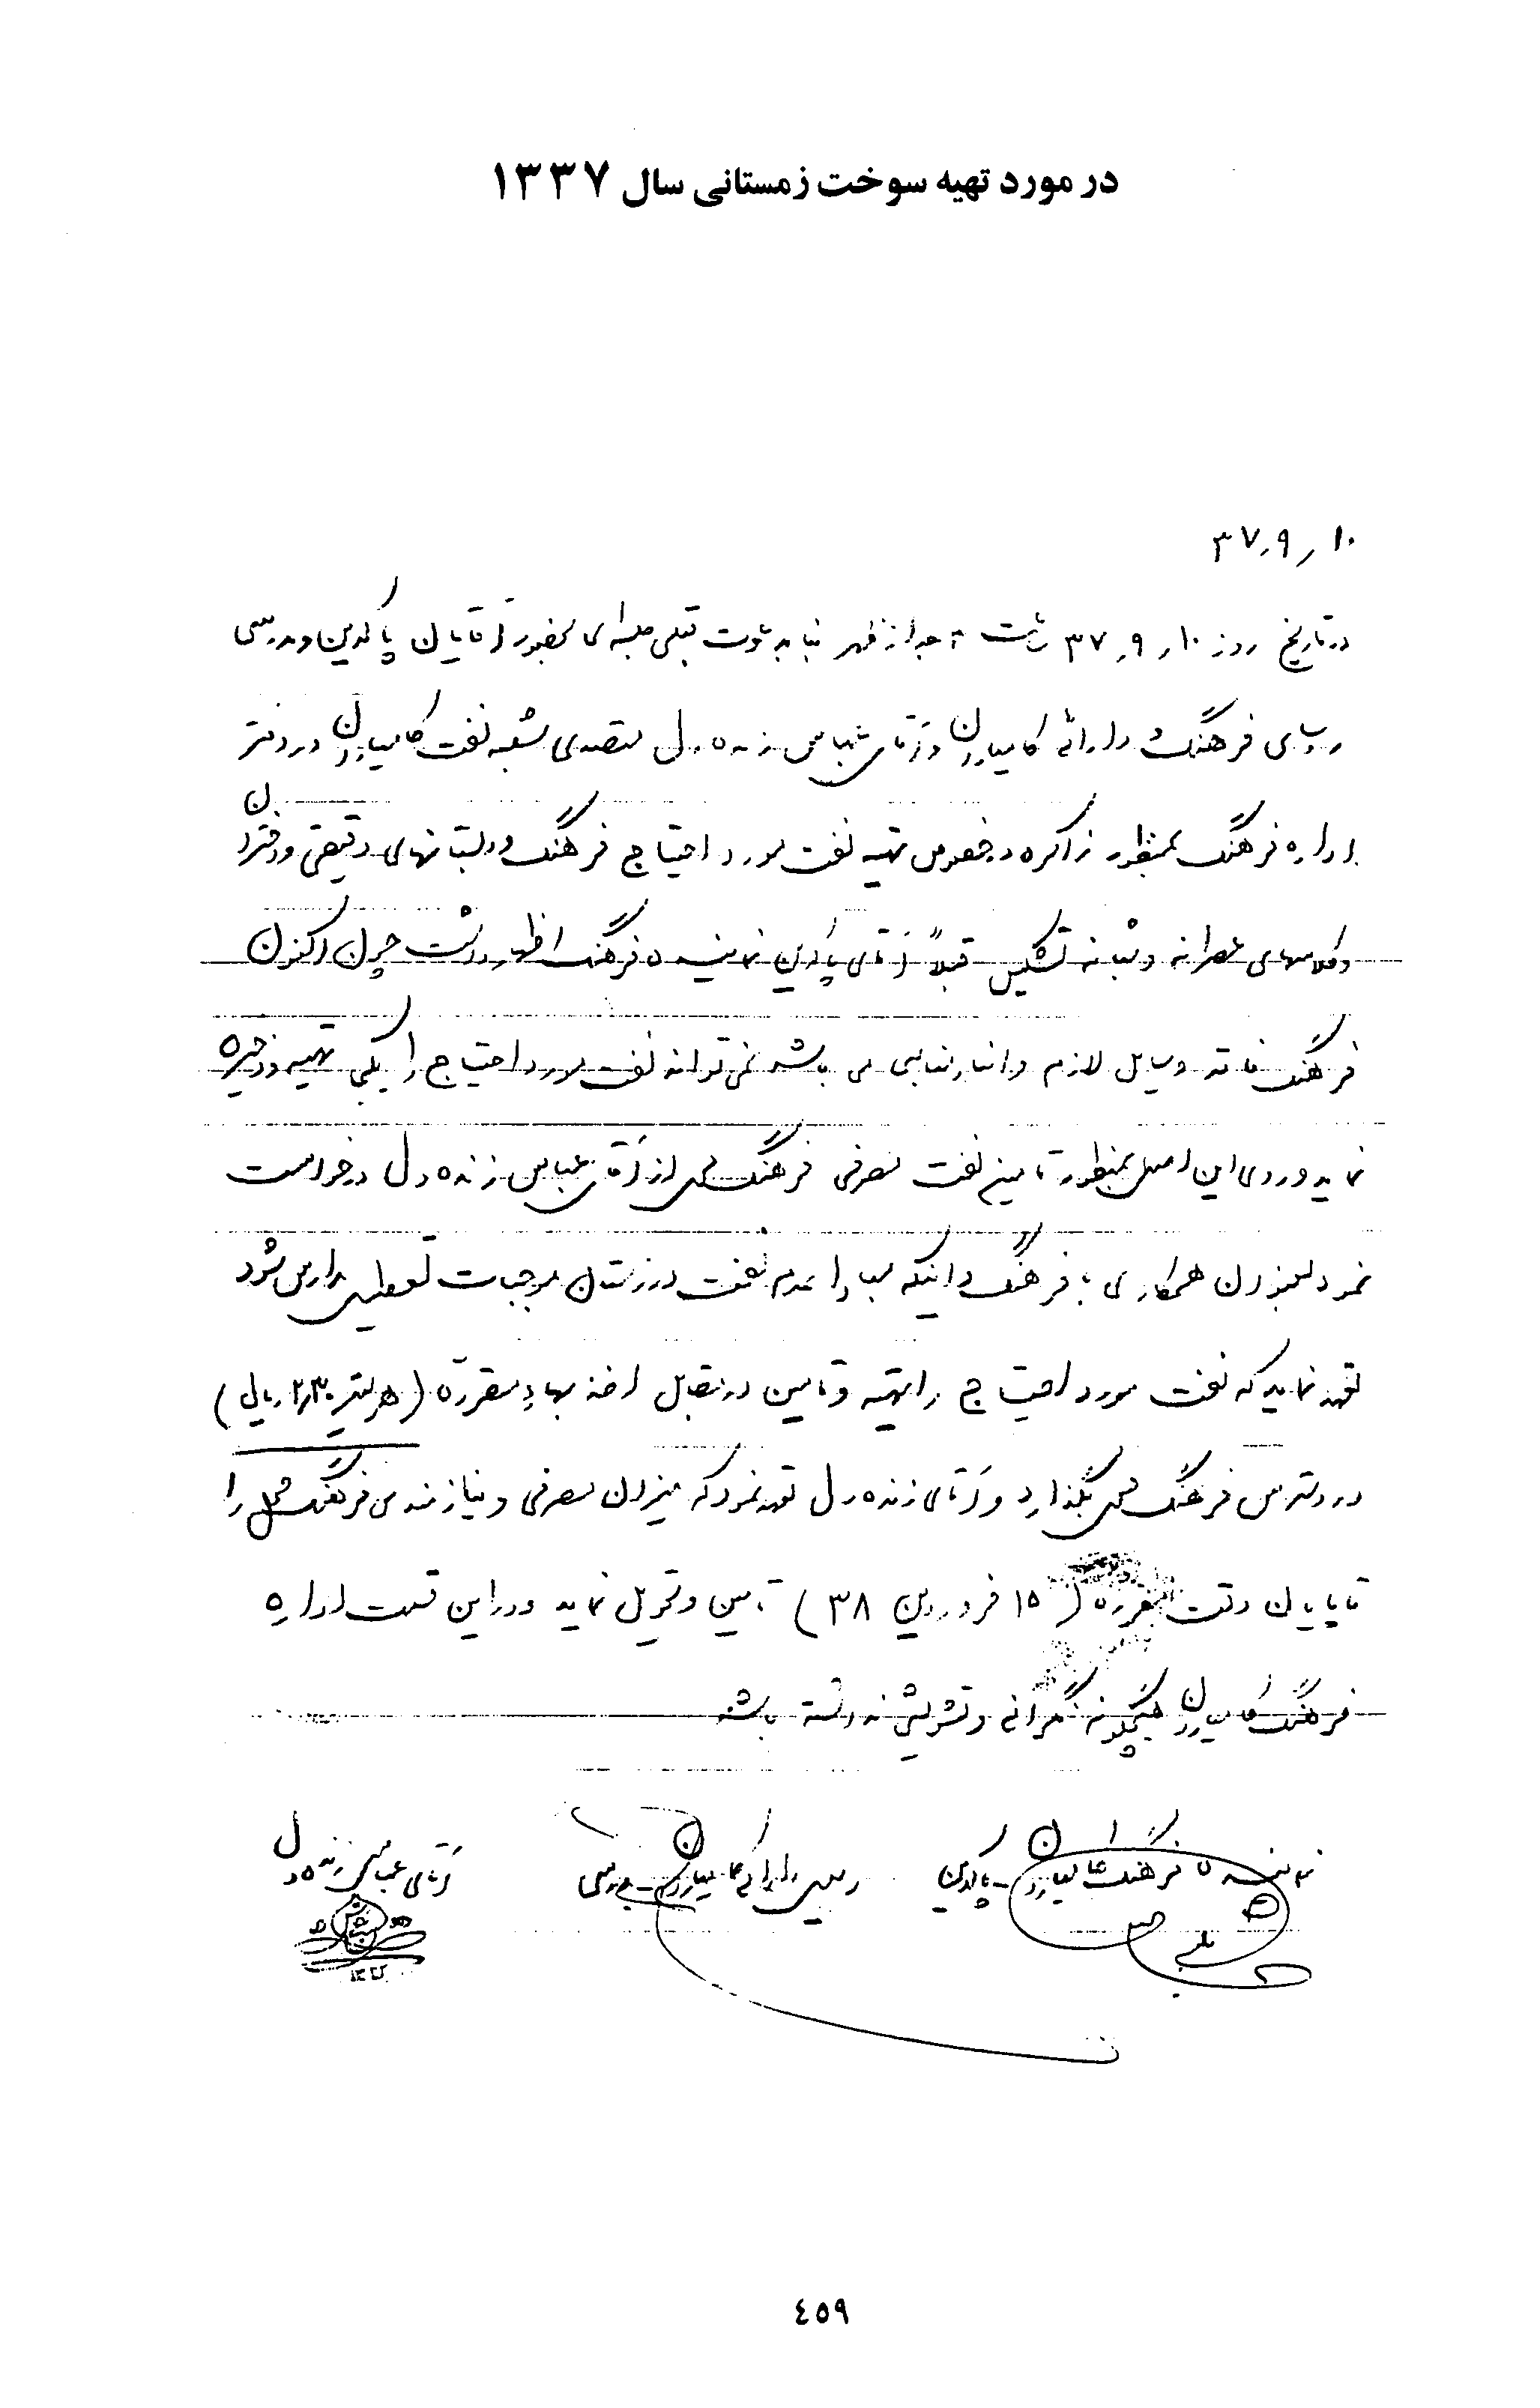 در مورد تهیه سوخت زمستانی سال ۱۳۳۷
۳۷٫۹٫۱۰
در تاریخ روز ۱۰٫۹٫۳۷ ساعت ۴ بعد از ظهر بنا به دعوت قبلی جلسه‌ای بحضور آقایان پاکدین و مدرسی
روسای فرهنگ و دارائی کامیاران و آقای عباس زنده دل متصدی شعبه نفت کامیاران در دفتر
اداره فرهنگ بمنظور مذاکره در خصوص تهیه نفت مورد احتیاج فرهنگ و دبستانهای و دختران
و کلاسهای عصرانه و شبانه تشکیل قبلاً آقای پاکدین نماینده فرهنگ اظهار داشت چون اکنون
فرهنگ فاقد وسایل لازم و انبار مناسبی می باشد نمی تواند نفت مورد احتیاج را یکجا تهیه و ذخیره
نماید و روی این اصل بمنظور تامین نفت مصرفی فرهنگ محل از آقای عباس زنده دل درخواست
نمود بعنوان همکاری با فرهنگ و اینکه مبادا عدم نفت در زمستان موجبات تعطیل مدارس شود
تعهد نماید که نفت مورد احتیاج را تهیه و تامین در مقابل اخذ بهاء مقرره (هر لیتر ۲٫۳۰ ریال)
در دسترس فرهنگ محل بگذارد و آقای زنده دل تعهد نمود که میزان مصرفی و نیازمندی فرهنگ محل را
تا پایان وقت مقرره (۱۵ فروردین ۳۸) تامین و تحویل نماید و در این قسمت اداره
فرهنگ کامیاران هیچگونه نگرانی و تشویش نداشته باشد
نماینده فرهنگ کامیاران - پاکدین
رئیس دارائی کامیاران - مدرسی
آقای عباس زنده دل
٤٥٩